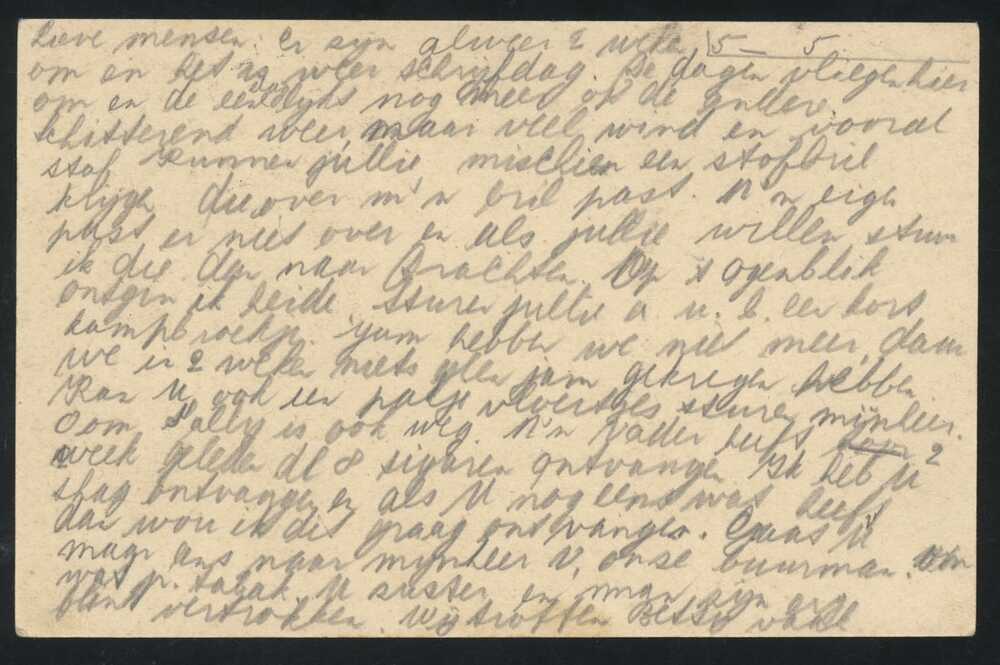 Lieve mensen. Er zijn alweer 2 weken 5 - 5
om en het is weer schrijfdag. De dagen vliegen hier
om en de eendlijks nog meer op de
schitterend weer maar veel wind en vooral
stof kunnen jullie mischien een stofbril
krijgen die over m'n bril past. M'n eigen
past er niet over en als jullie willen stuur
ik die dan naar Drachten. Op 's ogenblik
ontgin ik heide sturen jullie a.u.b. een kort
kampbroekje. Jam hebben we niet meer, daar
we in 2 weken niets geen jam gekregen hebben
Kan U ook een paktje vloeitjes sturen mijnheer.
Oom Sally is ook weg. M'n vader heeft 2
week geleden de 8 sigaren ontvangen Ik heb U
shag ontvangen en als U nog eens wat heeft
dan wou ik dit graag ontvangen. U
maar eens naar mijnheer V, onze buurman.
was p. tabak. U zuster en man zijn
vertrokken. Wij troffen Betsy